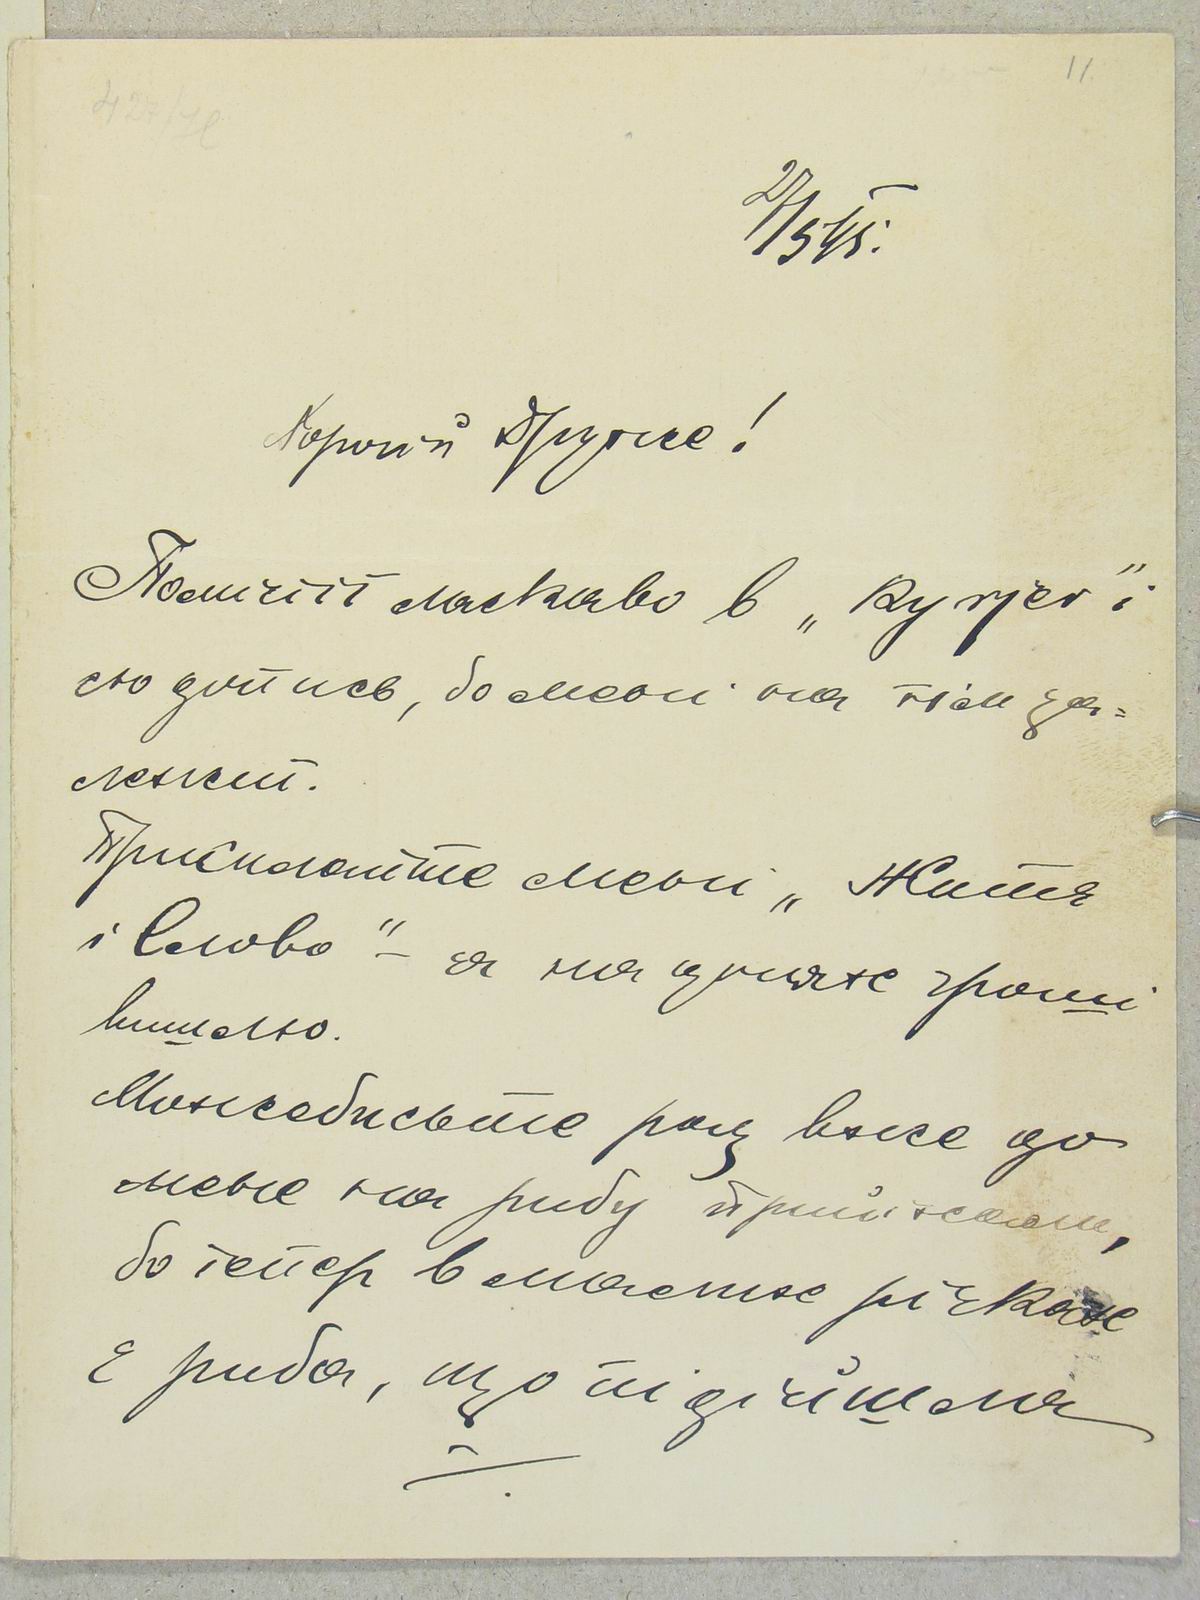 11
427/78
27/5 95.
Дорогий Друже!
Помістіт ласкаво в „Кур'єр" і
сю допись, бо мені на тім за=
лежит.
Присилайте мені „Житє
і Слово" — а на друге гроші
вишлю.
Можебисьте раз вже до
мене на рибу приїхали,
бо тепер в маленке річка
є риба, що підійшла